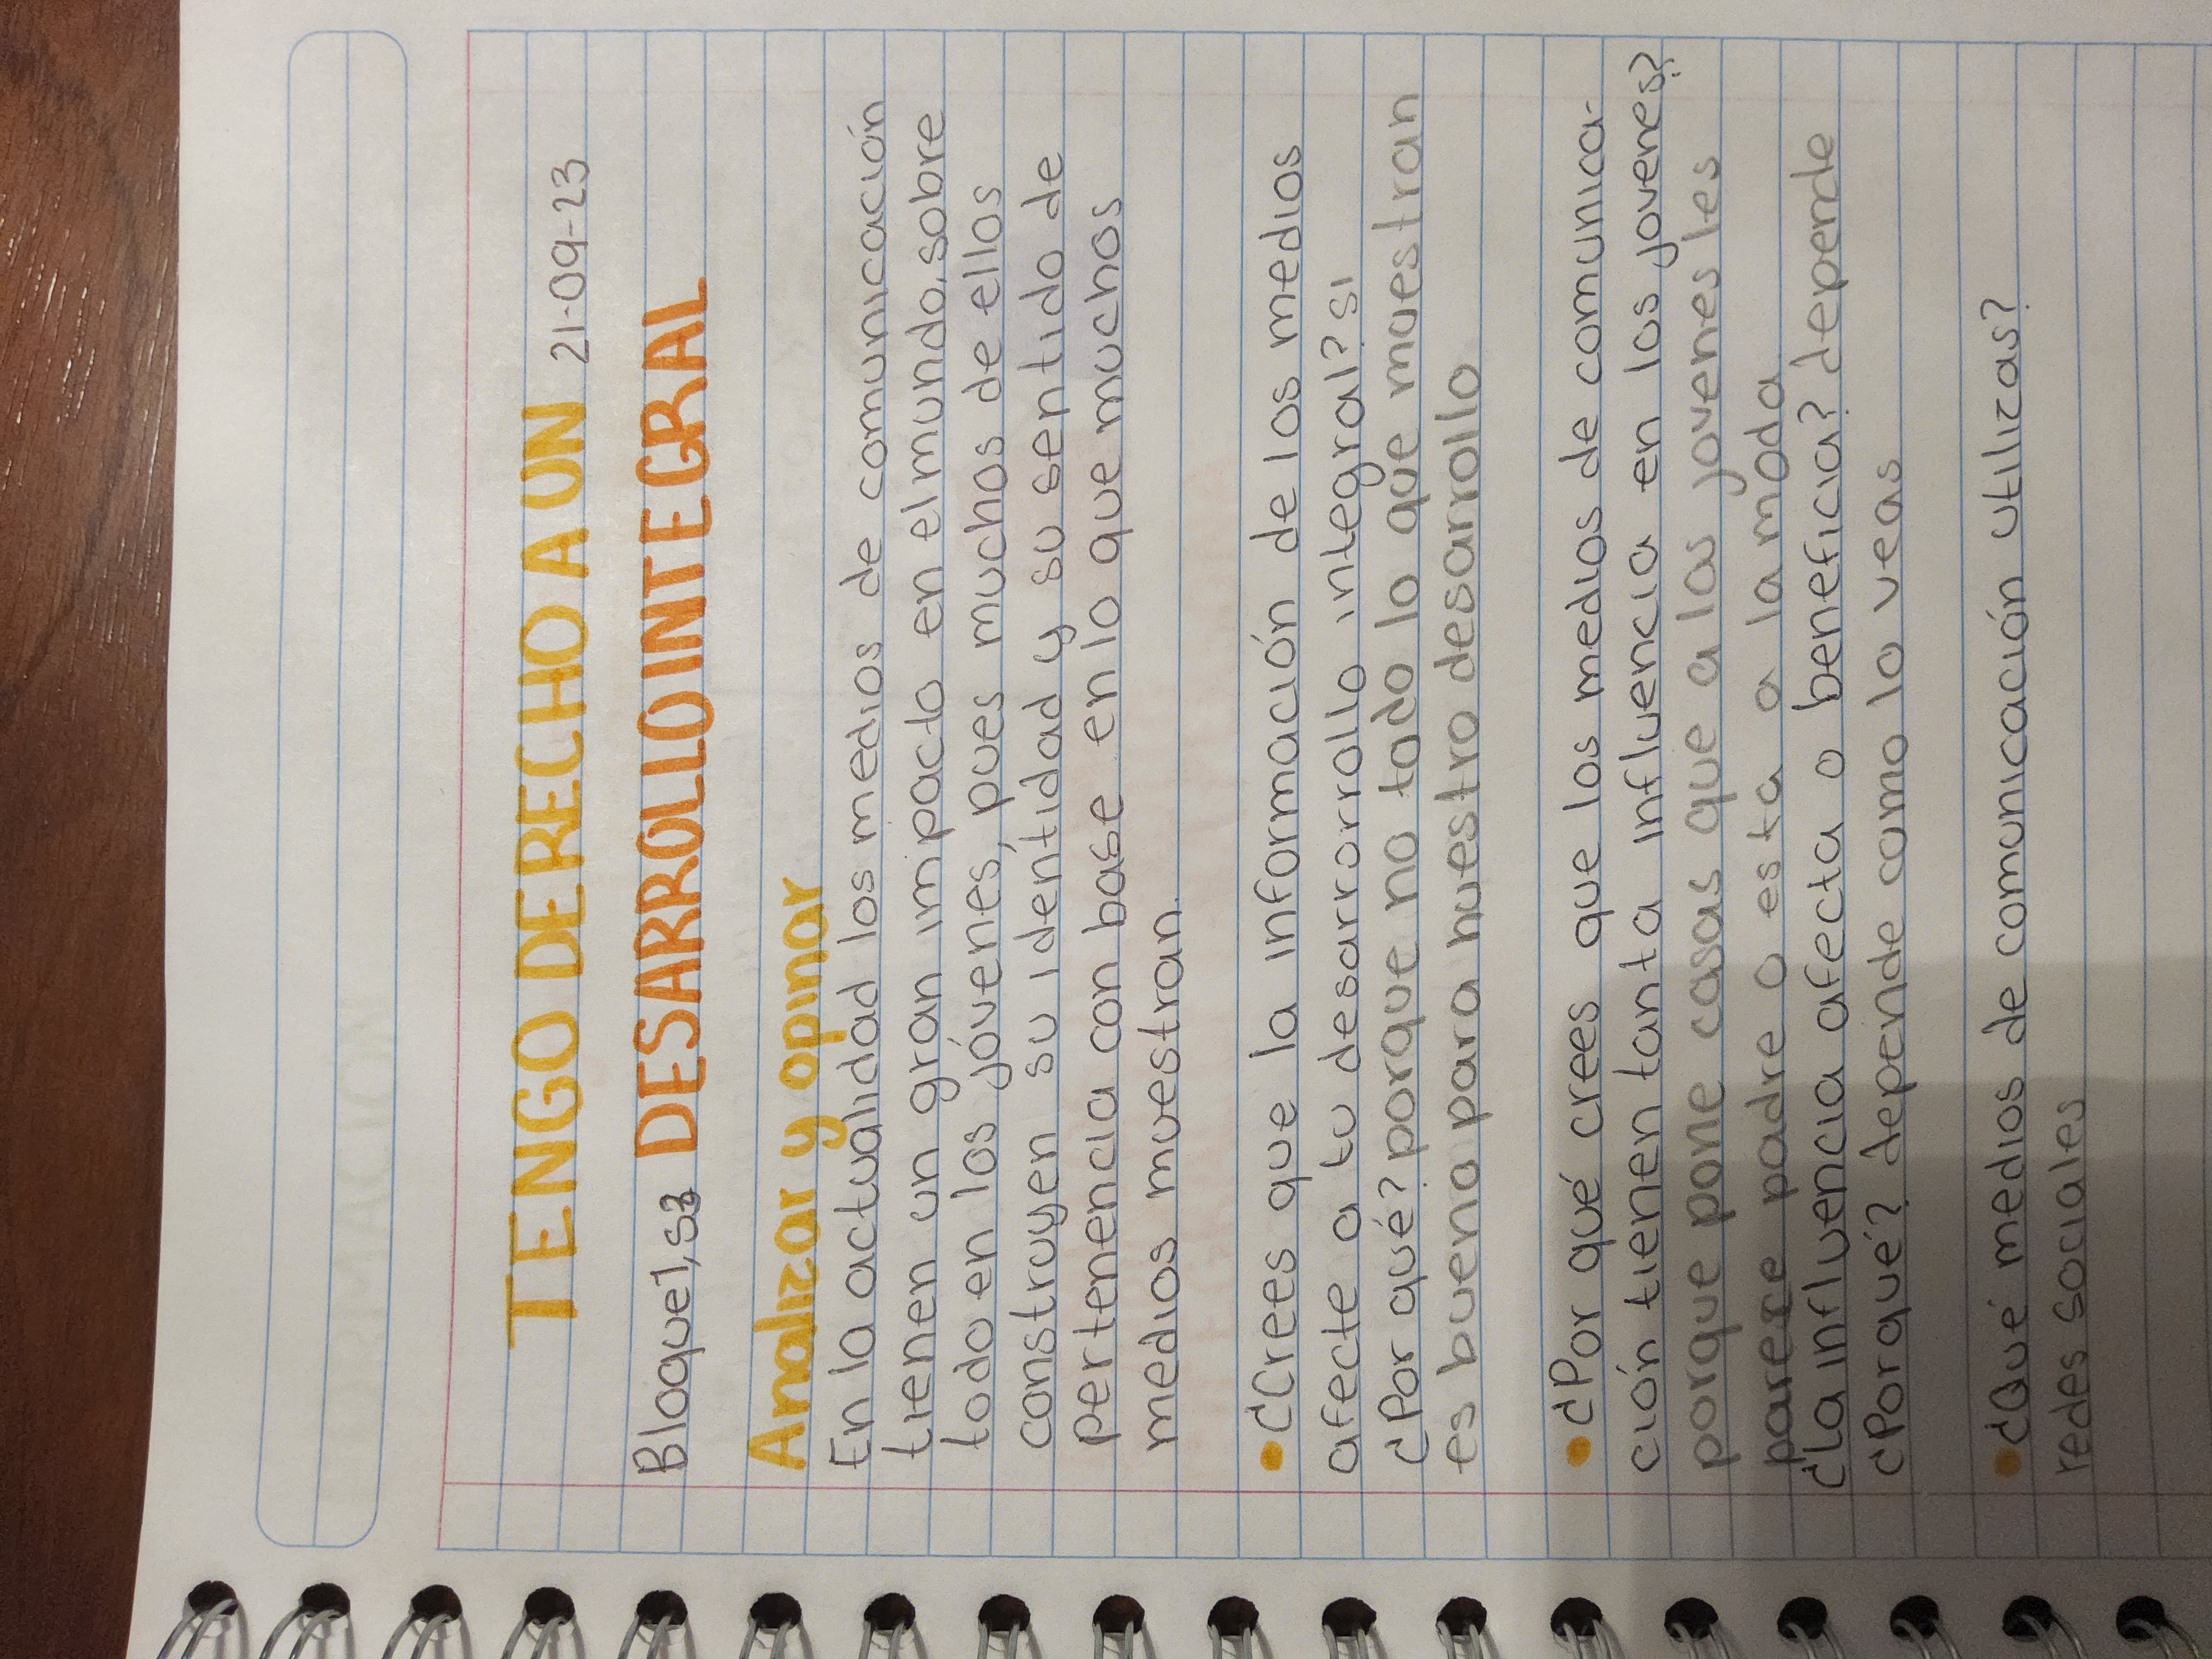 TENGO DERECHO A UN 21-09-23
Bloque1, s3 DESARROLLO INTEGRAL
Analizar y opinar
En la actualidad los medios de comunicación
tienen un gran impacto en el mundo, sobre
todo en los jóvenes, pues muchos de ellos
construyen su identidad y su sentido de
pertenencia con base en lo que muchos
medios muestran.
• ¿Crees que la información de los medios
afecte a tu desarrorrollo integral? si
¿Por qué? porque no todo lo que muestran
es bueno para nuestro desarrollo
• ¿Por qué crees que los medios de comunica-
ción tienen tanta influencia en los jovenes?
porque pone cosas que a los jovenes les
parece padre o esta a la moda
¿la influencia afecta o beneficia? depende
¿Porqué? depende como lo veas
• ¿Qué medios de comunicación utilizas?
redes sociales